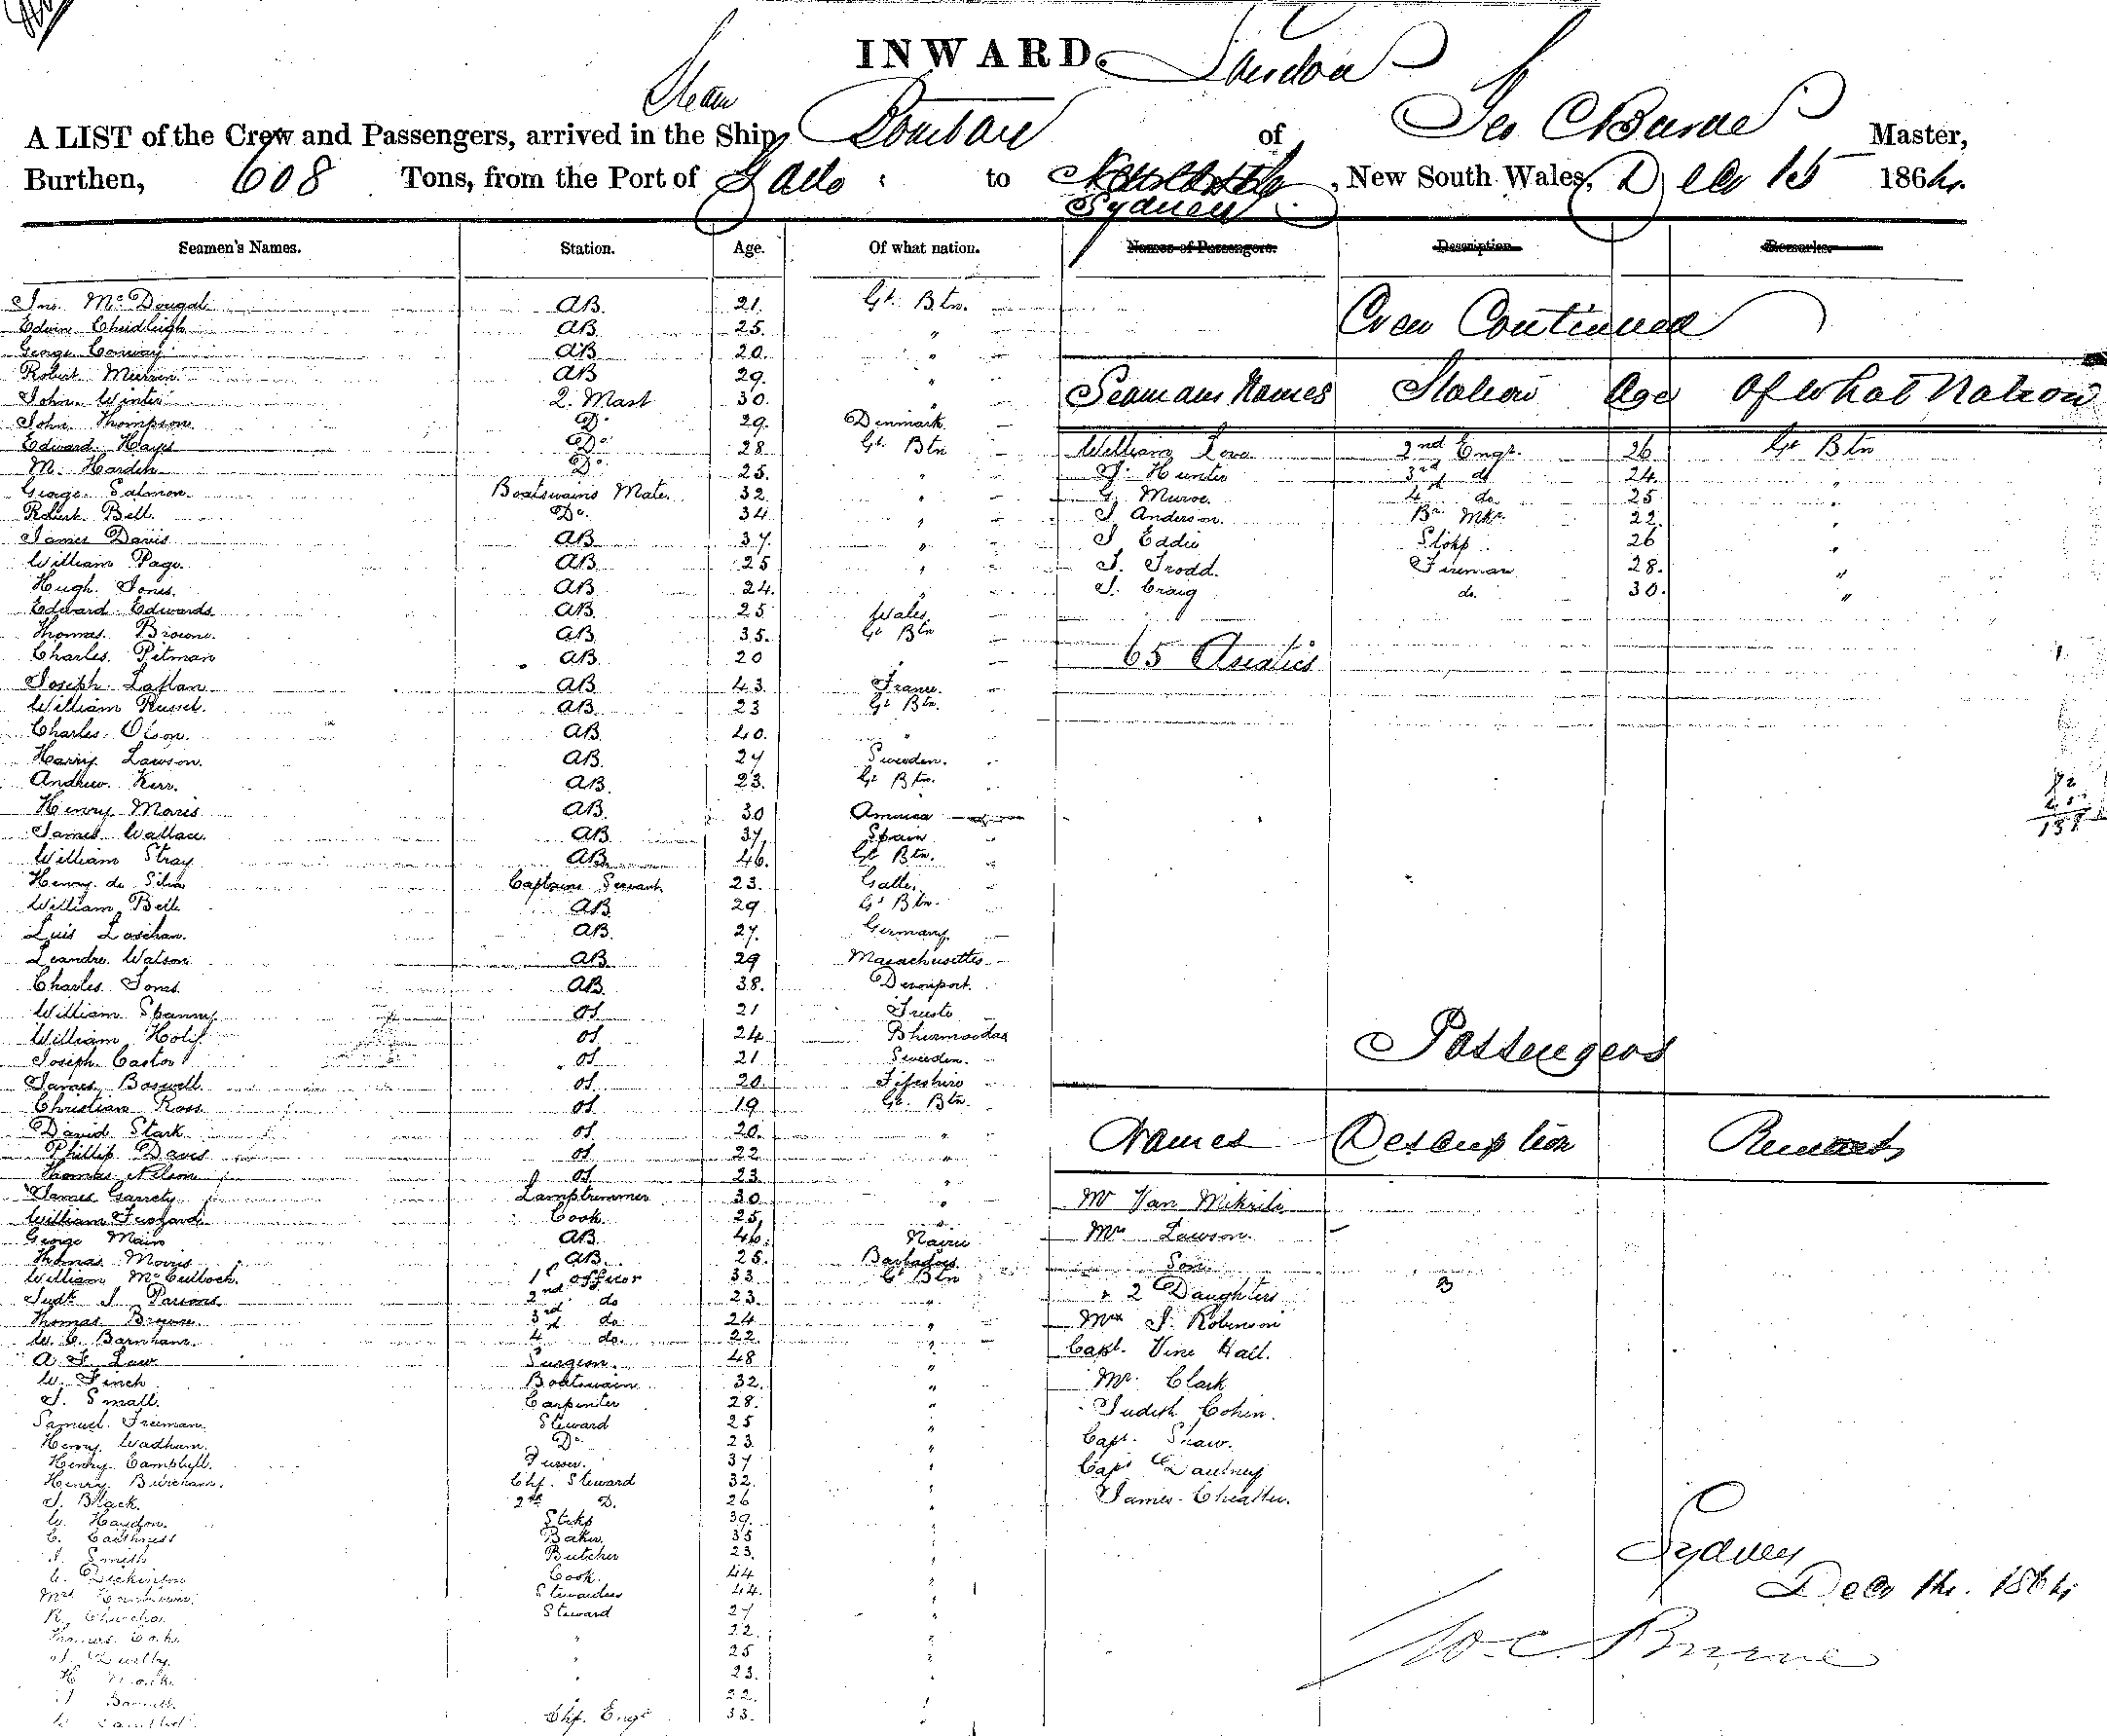 INWARD.
London
Steam
A LIST of the Crew and Passengers, arrived in the Ship Bombay of Geo C Burne Master,
Burthen, 608 Tons, from the Port of Galle to Sydney, New South Wales, Decr 15 1864.
Seamen's Names. Station. Age. Of what nation. Names of Passengers. Description. Remarks.
Jno. McDougal AB. 21. Gt. Btn.
Edwin Chudleigh AB 25. "
George Conway AB 20. "
Robert AB 29. "
John Winter 2. Mast 30. "
John Thompson Do 29. Denmark
Edward Hays Do 28 Gt Btn
M. Harden Do 25. "
George Salmon. Boatswains Mate. 32 "
Robert Bell. Do. 34 "
James Davis AB 37. "
William Page. AB. 25 "
Hugh Jones. AB 24. "
Edward Edwards AB. 25 Wales
Thomas Browne. AB. 35. Gt Btn
Charles Pitman AB 20 "
Joseph Laflan AB 43. France.
William Russel. AB. 23 Gt Btn.
Charles Olson. AB. 40. "
Harry Lawson. AB. 27 Sweeden.
Andrew Kerr. AB 23. Gt Btn.
Henry Moris AB. 30 America
James Wallace. AB 37. Spain
William Stray AB. 46. Gt Btn.
Henry de Silva Captains Servant 23. Galle.
William Bell AB 29 Gt Btn.
Luis Laschan. AB. 27. Germany
Leandre Watson AB 29 Massachusettes
Charles Jones AB. 38. Devonport.
William Spanny OS 21
William OS 24 Bhermoodas
Joseph Castor OS 21 Sweeden.
James Boswell OS 20. Fifeshire
Christian Ross OS 19 Gt. Btn
David Stark OS 20. "
Phillip Davis OS 22 "
Thomas Nelson OS 23. "
James Garrety Lamptrimmer 30 "
William Cook. 25, "
George Main AB 46. Nairn
Thomas Morris AB. 25. Barbadoes
William McCulloch. 1st officer 33 Gt Btn
J Parsons. 2nd do 23. "
Thomas Browne. 3rd do 24 "
W. C. Barnham. 4 do. 22 "
A. F. Law Surgeon. 48 "
W. Finch Boatswain 32. "
J. Small. Carpenter 28. "
Samuel. Freeman. Steward 25 "
Henry Wadham. Do 23. "
Henry Campbell. Purser. 37 "
Henry Chf. Steward 32. "
J. Black. 2nd D. 26 "
W. Haydon. Stkp 39. "
C. Caithness Baker. 35 "
J. Smith Butcher 23. "
C. Dickinson Cook. 44 "
Mrs Stewardess 44. "
R. Steward 27 "
Thomas " 22. "
J. " 25 "
H " 23. "
22.
Chf. Engr 33.
Crew Continued
Seamans Names Station Age Of what Nation
William Love 2nd Engr. 26 Gt Btn
J. Hunter 3rd do 24. "
G. Munro. 4 do. 25 "
J. Anderson. Br. Mkr. 22. "
J Eddie Stokp 26 "
J. Trodd. Fireman 28. "
J. Craig do. 30. "
65 Asiatics
72
65
137
Passengers
Names Description Remarks
Mr Van
Mrs Lawson.
Son
& 2 Daughters 3
Mrs J. Robinson
Capt. Vine Hall.
Mr. Clark
Judith Cohen.
Capt. Shaw.
Capt
James
Sydney
Decr 1864
Geo C. Burne